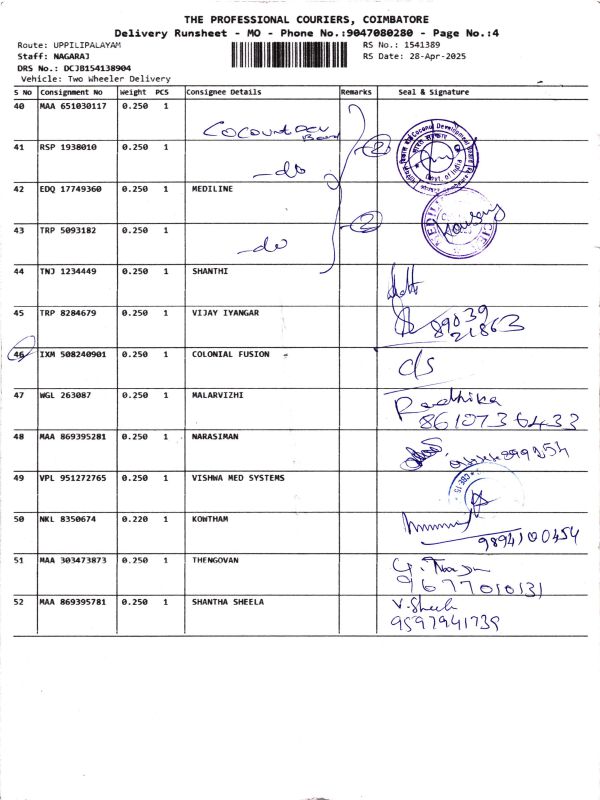 THE PROFESSIONAL COURIERS, COIMBATORE
Delivery Runsheet - MO - Phone No.:9047080280 - Page No.:4
Route: UPPILIPALAYAM RS No.: 1541389
Staff: NAGARAJ RS Date: 28-Apr-2025
DRS No.: DCJB154138904
Vehicle: Two Wheeler Delivery
S NO Consignment No Weight PCS Consignee Details Remarks Seal & Signature
40 MAA 651030117 0.250 1
41 RSP 1938010 0.250 1 -do 2
Coconut Development Board
Govt. of India
42 EDQ 17749360 0.250 1 MEDILINE
43 TRP 5093182 0.250 1 -do 2
44 TNJ 1234449 0.250 1 SHANTHI
45 TRP 8284679 0.250 1 VIJAY IYANGAR 89039
21863
46 IXM 508240901 0.250 1 COLONIAL FUSION c/s
47 WGL 263087 0.250 1 MALARVIZHI Radhika
8610736433
48 MAA 869395281 0.250 1 NARASIMAN
49 VPL 951272765 0.250 1 VISHWA MED SYSTEMS
50 NKL 8350674 0.220 1 KOWTHAM
9894100454
51 MAA 303473873 0.250 1 THENGOVAN
9677010131
52 MAA 869395781 0.250 1 SHANTHA SHEELA V. Sheela
9597941739